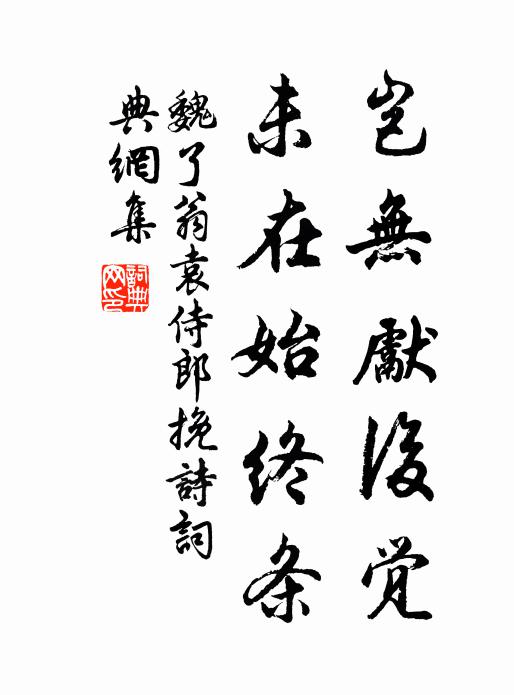 岂無獻後觉
未在始终条
魏了翁袁侍郎挽詩詞
典網集
詞典网印